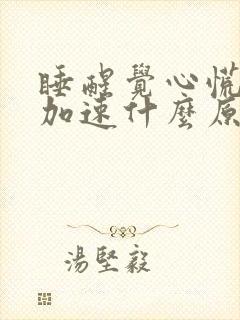 睡醒覺心慌
加速什麼原
湯堅毅